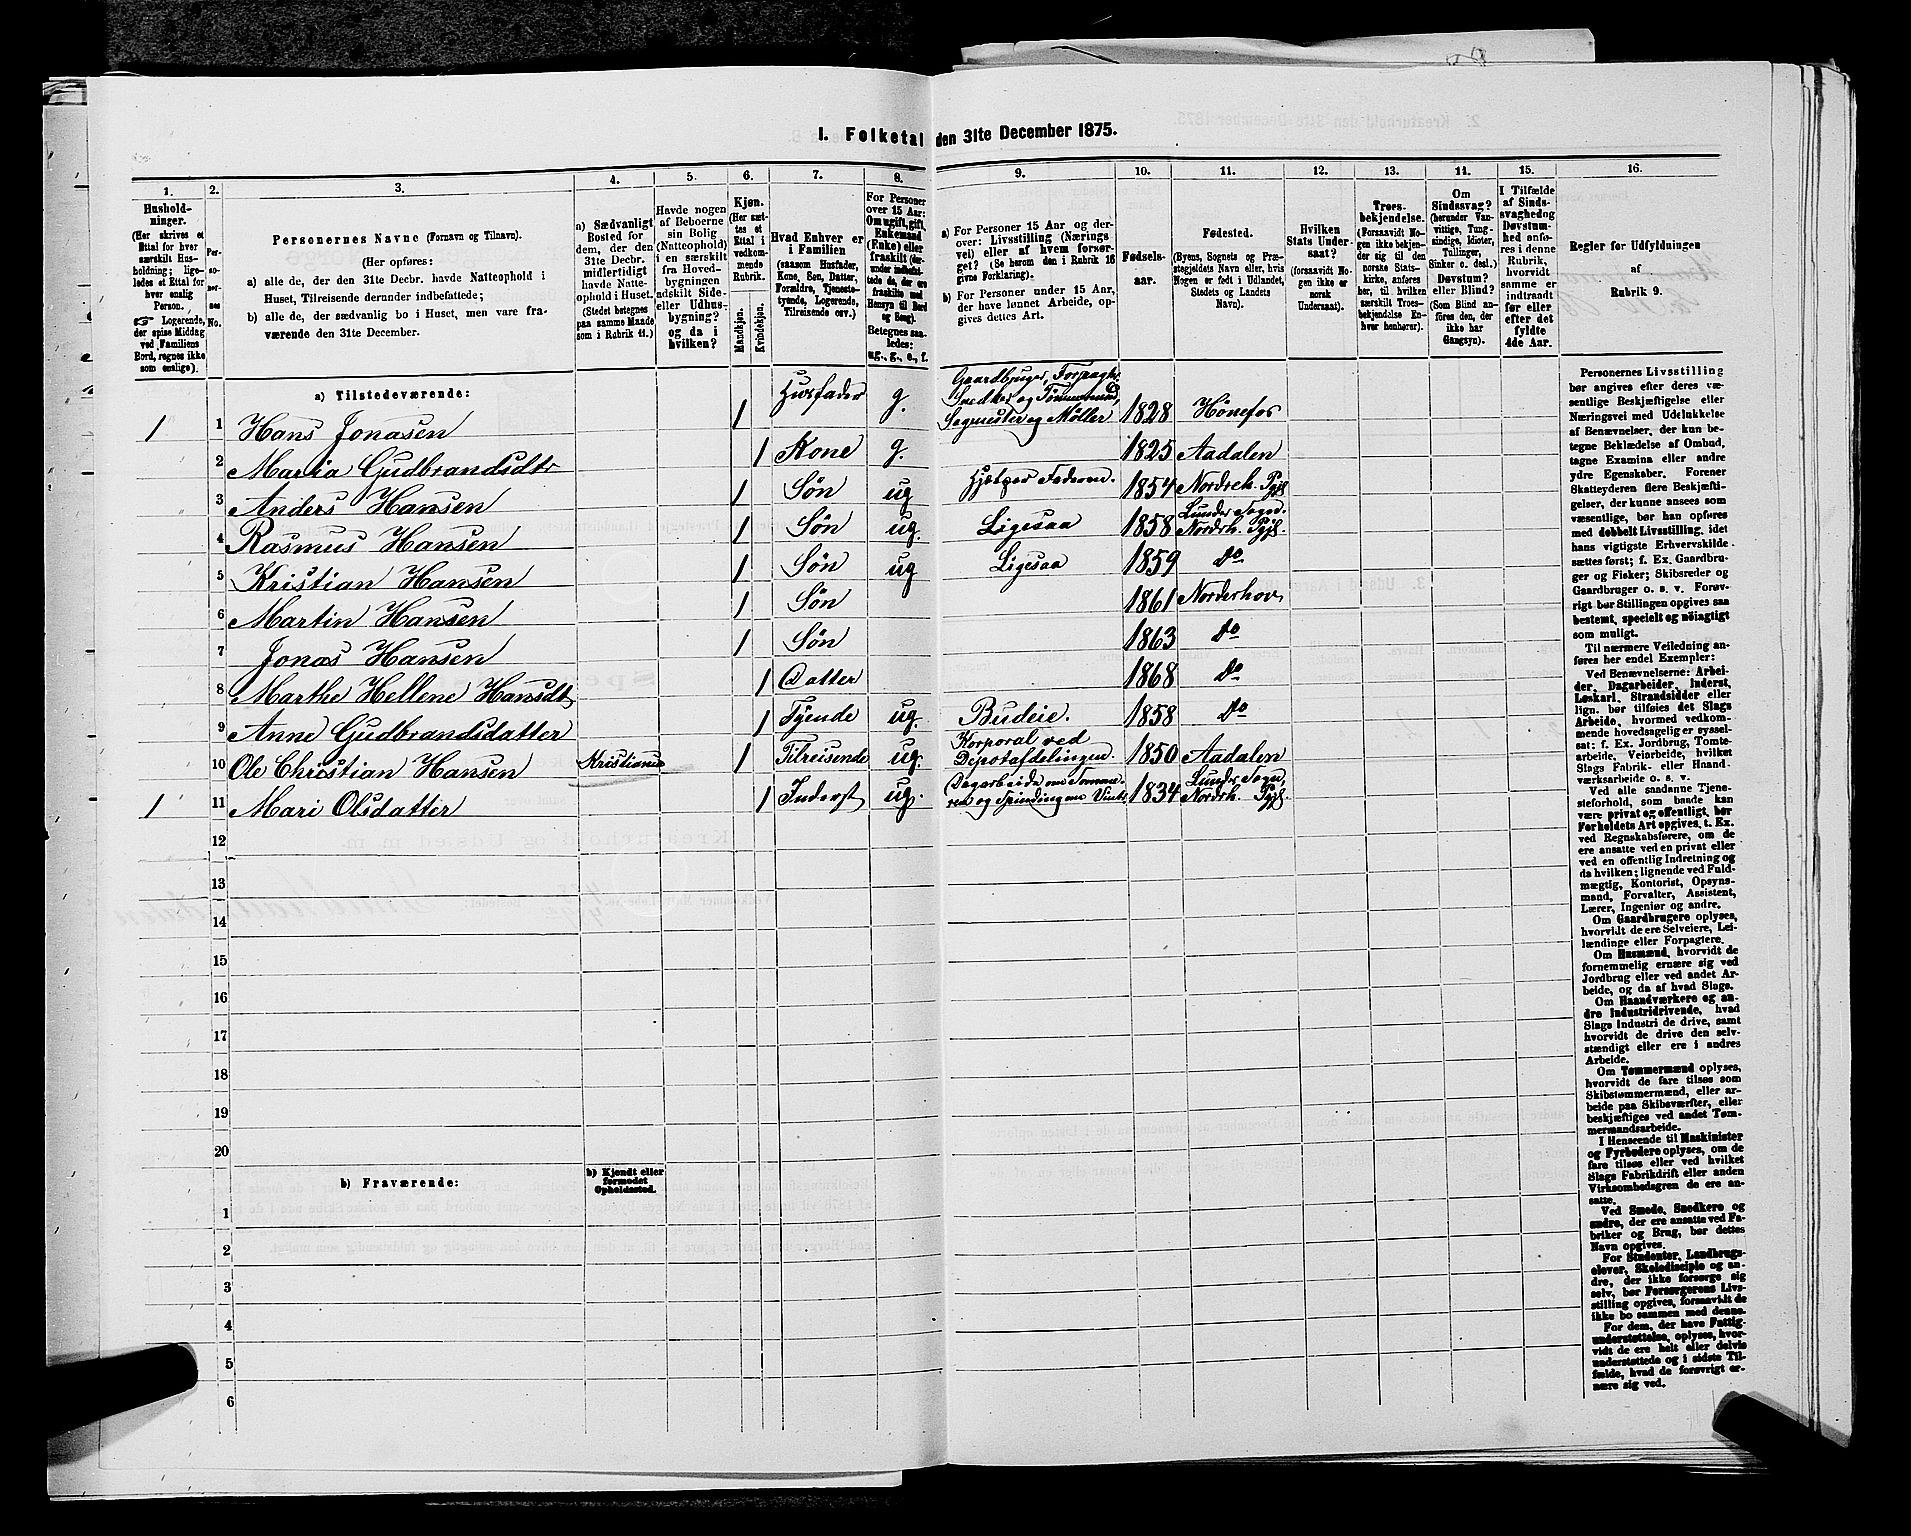 I. Folketal den 31te December 1875.
1. 2. 3. 4. 5. 6. 7. 8. 9. 10. 11. 12. 13. 14. 15. 16.
Hushold-
ninger.
(Her skrives et
Ettal for hver
særskilt Hus-
holdning; lige-
ledes et Ettal
for hver enslig
Person.
☞ Logerende,
der spise Middag
ved Familiens
Bord, regnes ikke
som enslige).
Per-
so-
ner-
nes
No.
Personernes Navne (Fornavn og Tilnavn).
(Her opføres:
a) alle de, der den 31te Decbr. havde Natteophold i
Huset, Tilreisende derunder indbefattede;
b) alle de, der sædvanlig bo i Huset, men vare fra-
værende den 31te December.
a) Sædvanligt
Bosted for
dem, der den
31te Decbr.
midlertidigt
havde Natte-
ophold i Huset.
(Stedet betegnes
paa samme Maade
som i Rubrik 11.)
Havde nogen
af Beboerne
sin Bolig
(Natteophold)
i en særskilt
fra Hoved-
bygningen
adskilt Side-
eller Udhus-
bygning?
og da i
hvilken?
Kjøn.
(Her sæt-
tes et
Ettal i
vedkom-
mende
Rubrik.
Mandkjøn.
Kvindekjøn.
Hvad Enhver er
i Familien
(saasom Husfader,
Kone, Søn, Datter,
Forældre, Tjeneste-
tyende, Logerende,
Tilreisende osv.)
For Personer
over 15 Aar:
Om ugift, gift,
Enkemand
(Enke) eller
fraskilt (der-
under indbefat-
tede de, der ere
fraskilte med
Hensyn til Bord
og Seng).
Betegnes saa-
ledes:
ug., g., e., f.
a) For Personer 15 Aar og der-
over: Livsstilling (Nærings-
vei) eller af hvem forsør-
get? (Se herom den i Rubrik 16
givne Forklaring).
b) For Personer under 15 Aar,
der have lønnet Arbeide, op-
gives dettes Art.
Fødsels-
aar.
Fødested.
(Byens, Sognets og Præ-
stegjeldets Navn eller, hvis
Nogen er født i Udlandet,
Stedets og Landets
Navn).
Hvilken
Stats Under-
saat?
(forsaavidt No-
gen ikke er
norsk
Undersaat).
Troes-
bekjendelse.
(Forsaavidt No-
gen ikke bekjen-
der sig til den
norske Stats-
kirke, anføres
her, til hvilken
særskilt Troes-
bekjendelse En-
hver henhører).
Om
Sindssvag?
(herunder Van-
vittige, Tung-
sindige, Idioter,
Tullinger,
Sinker o. desl.)
Døvstum?
eller Blind?
(Som Blind an-
føres den, der
ikke har
Gangsyn).
I Tilfælde
af Sinds-
svaghed og
Døvstum-
hed anfø-
res i denne
Rubrik,
hvorvidt
samme er
indtraadt
før eller
efter det
fyldte
4de Aar.
Regler for Udfyldningen
af
Rubrik 9.
a) Tilstedeværende:
1 1 Hans Jonasen 1 Husfader g. Gaardbruger, Forpagter Snedker og Tømmermand, Sagmester og Møller 1828 Hönefos
2 Maria Gudbrandsdtr 1 Kone g. 1825 Aadalen
3 Anders Hansen 1 Søn ug Hjælper Faderen. 1854 Nordreh. Pgjl
4 Rasmus Hansen 1 Søn ug. Ligesaa 1858 Lunder Sogn. Nordrh. Pgjl.
5 Kristian Hansen 1 Søn ug Ligesaa 1859 do
6 Martin Hansen 1 Søn 1861 Norderhov
7 Jonas Hansen 1 Søn 1863 do
8 Marthe Hellene Hansdt 1 Datter 1868 do
9 Anne Gudbrandsdatter 1 Tyende ug. Budeie. 1858 do
10 Ole Christian Hansen Kristiania 1 Tilreisende ug. Korporal ved Depotafdelingen. 1850 Aadalen
1 11 Mari Olsdatter 1 Inderst ug. (Dagarbeide om Sommeren og Spinding om Vintr. 1834 Lunder Sogn Nordrh. Pgjl.
12
13
14
15
16
17
18
19
20
b) Fraværende:
b) Kjendt eller
formodet
Opholdssted.
1
2
3
4
5
6
Personernes Livsstilling
bør angives efter deres væ-
sentlige Beskjæftigelse eller
Næringsvei med Udelukkelse
af Benævnelser, der kun be-
tegne Beklædelse af Ombud,
tagne Examina eller andre
ydre Egenskaber. Forener
Skatteyderen flere Beskjæfti-
gelser, der kunne ansees som
væsentlige, bør han opføres
med dobbelt Livsstilling, idet
hans vigtigste Erhvervskilde
sættes først; f. Ex. Gaardbru-
ger og Fisker; Skibsreder og
Gaardbruger o. s. v. Forøv-
rigt bør Stillingen opgives saa
bestemt, specielt og nöiagtigt
som muligt.
Til nærmere Veiledning an-
føres her endel Exempler:
Ved Benævnelserne: Arbei-
der, Dagarbeider, Inderst,
Løskarl, Strandsidder eller
lign. bør tilføies det Slags
Arbeide, hvormed vedkom-
mende hovedsagelig er syssel-
sat; f. Ex. Jordbrug, Tomte-
arbeide, Veiarbeide, hvilket
Slags Fabrik- eller Haand-
værksarbeide o. s. v.
Ved alle saadanne Tjene-
steforhold, som baade kan
være privat og offentligt, bør
Forholdets Art opgives, t. Ex.
ved Regnskabsførere, om de
ere ansatte ved en privat eller
ved en offentlig Indretning og
da hvilken; lignende ved Fuld-
mægtig, Kontorist, Opsyns-
mand, Forvalter, Assistent,
Lærer, Ingeniør og andre.
Om Gaardbrugere oplyses,
hvorvidt de ere Selveiere, Lei-
lændinge eller Forpagtere.
Om Husmænd, hvorvidt de
fornemmelig ernære sig ved
Jordbrug eller ved andet Ar-
beide, og da af hvad Slags.
Om Haandværkere og an-
dre Industridrivende, hvad
Slags Industri de drive, samt
hvorvidt de drive den selv-
stændigt eller ere i andres
Arbeide.
Om Tømmermænd oplyses,
hvorvidt de fare tilsøs som
Skibstømmermænd, eller ar-
beide paa Skibsværfter, eller
beskjæftiges ved andet Tøm-
mermandsarbeide.
I Henseende til Maskinister
og Fyrbødere oplyses, om de
fare tilsøs eller ved hvilket
Slags Fabrikdrift eller anden
Virksomhedsgren de ere an-
satte.
Ved Smede, Snedkere og
andre, der ere ansatte ved Fa-
briker og Brug, bør dettes
Navn opgives.
For Studenter, Landbrugs-
elever, Skoledisciple og an-
dre, der ikke forsørge sig
selv, bør Forsørgerens Livs-
stilling opgives, forsaavidt de
ikke bo sammen med denne.
For dem, der have Fattig-
understøttelse, oplyses, hvor-
vidt de ere helt eller delvis
understøttede og i sidste Til-
fælde, hvad de forøvrigt er-
nære sig ved.